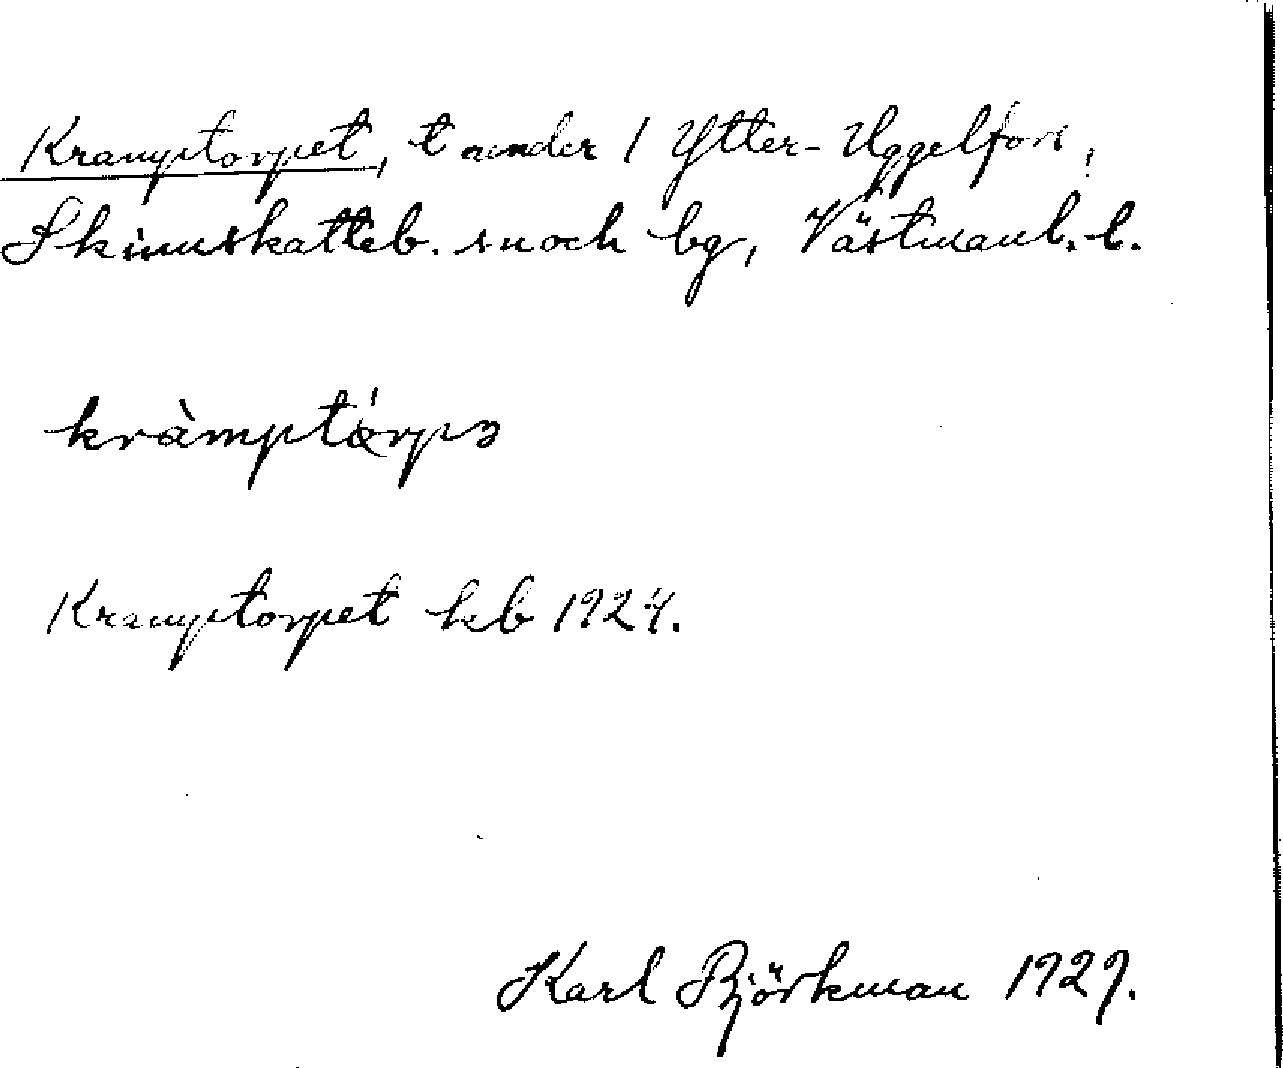 Kramptorpet, t under 1 Ytter-Uggelfors,
Skinnskatteb. sn och bg, Västmanl. l.
kràmptårpə
Kramptorpet kb 1924.
Karl Björkman 1929.